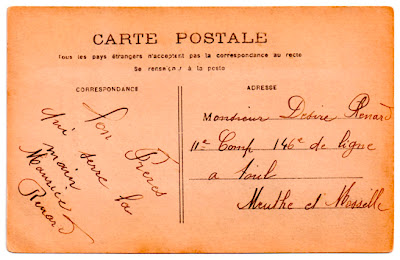 CARTE POSTALE
Tous les pays étrangers n'acceptent pas la correspondance au recto
Se renseigner à la poste
CORRESPONDANCE
ton Frères
qui serre la
main
Maurice
Renard
ADRESSE
Monsieur Desire Renard
11e Comp 146e de ligne
a Toul
Meurthe et Moselle